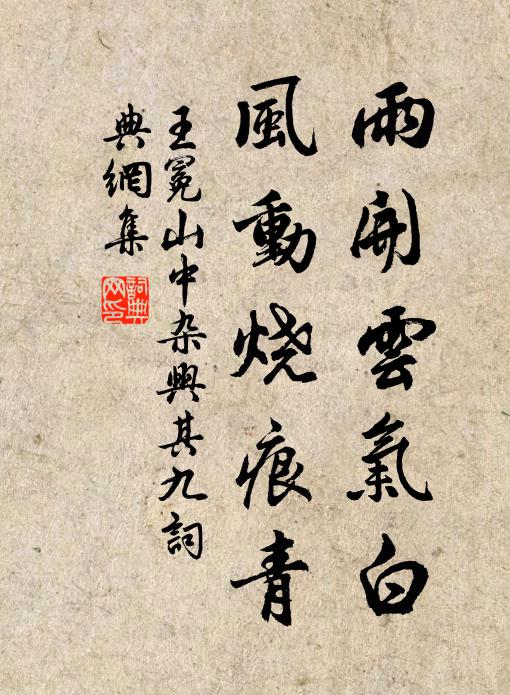 雨開雲氣白
風動烧痕青
王冕山中杂興其九詞
典網集
詞典
网印